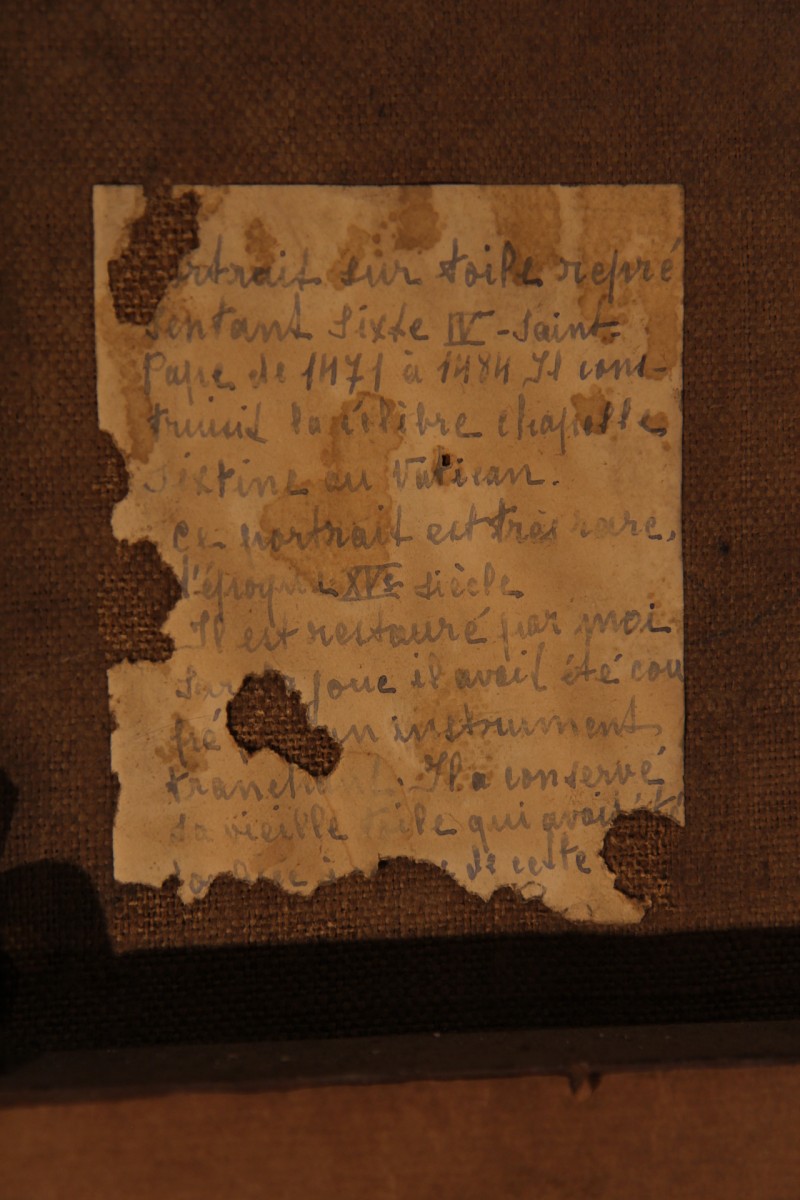 ortrait sur toile repré
sentant Sixte IV - Saint-
Pape de 1471 à 1484 Il cons-
truisit la célèbre chapelle
Sixtine au Vatican.
Ce portrait est très rare,
l'époque XVe siècle
Il est restauré par moi
Sur la joue il avait été cou
pé un instrument
tranchant. Il a conservé
sa vieille toile qui avait été
de cette